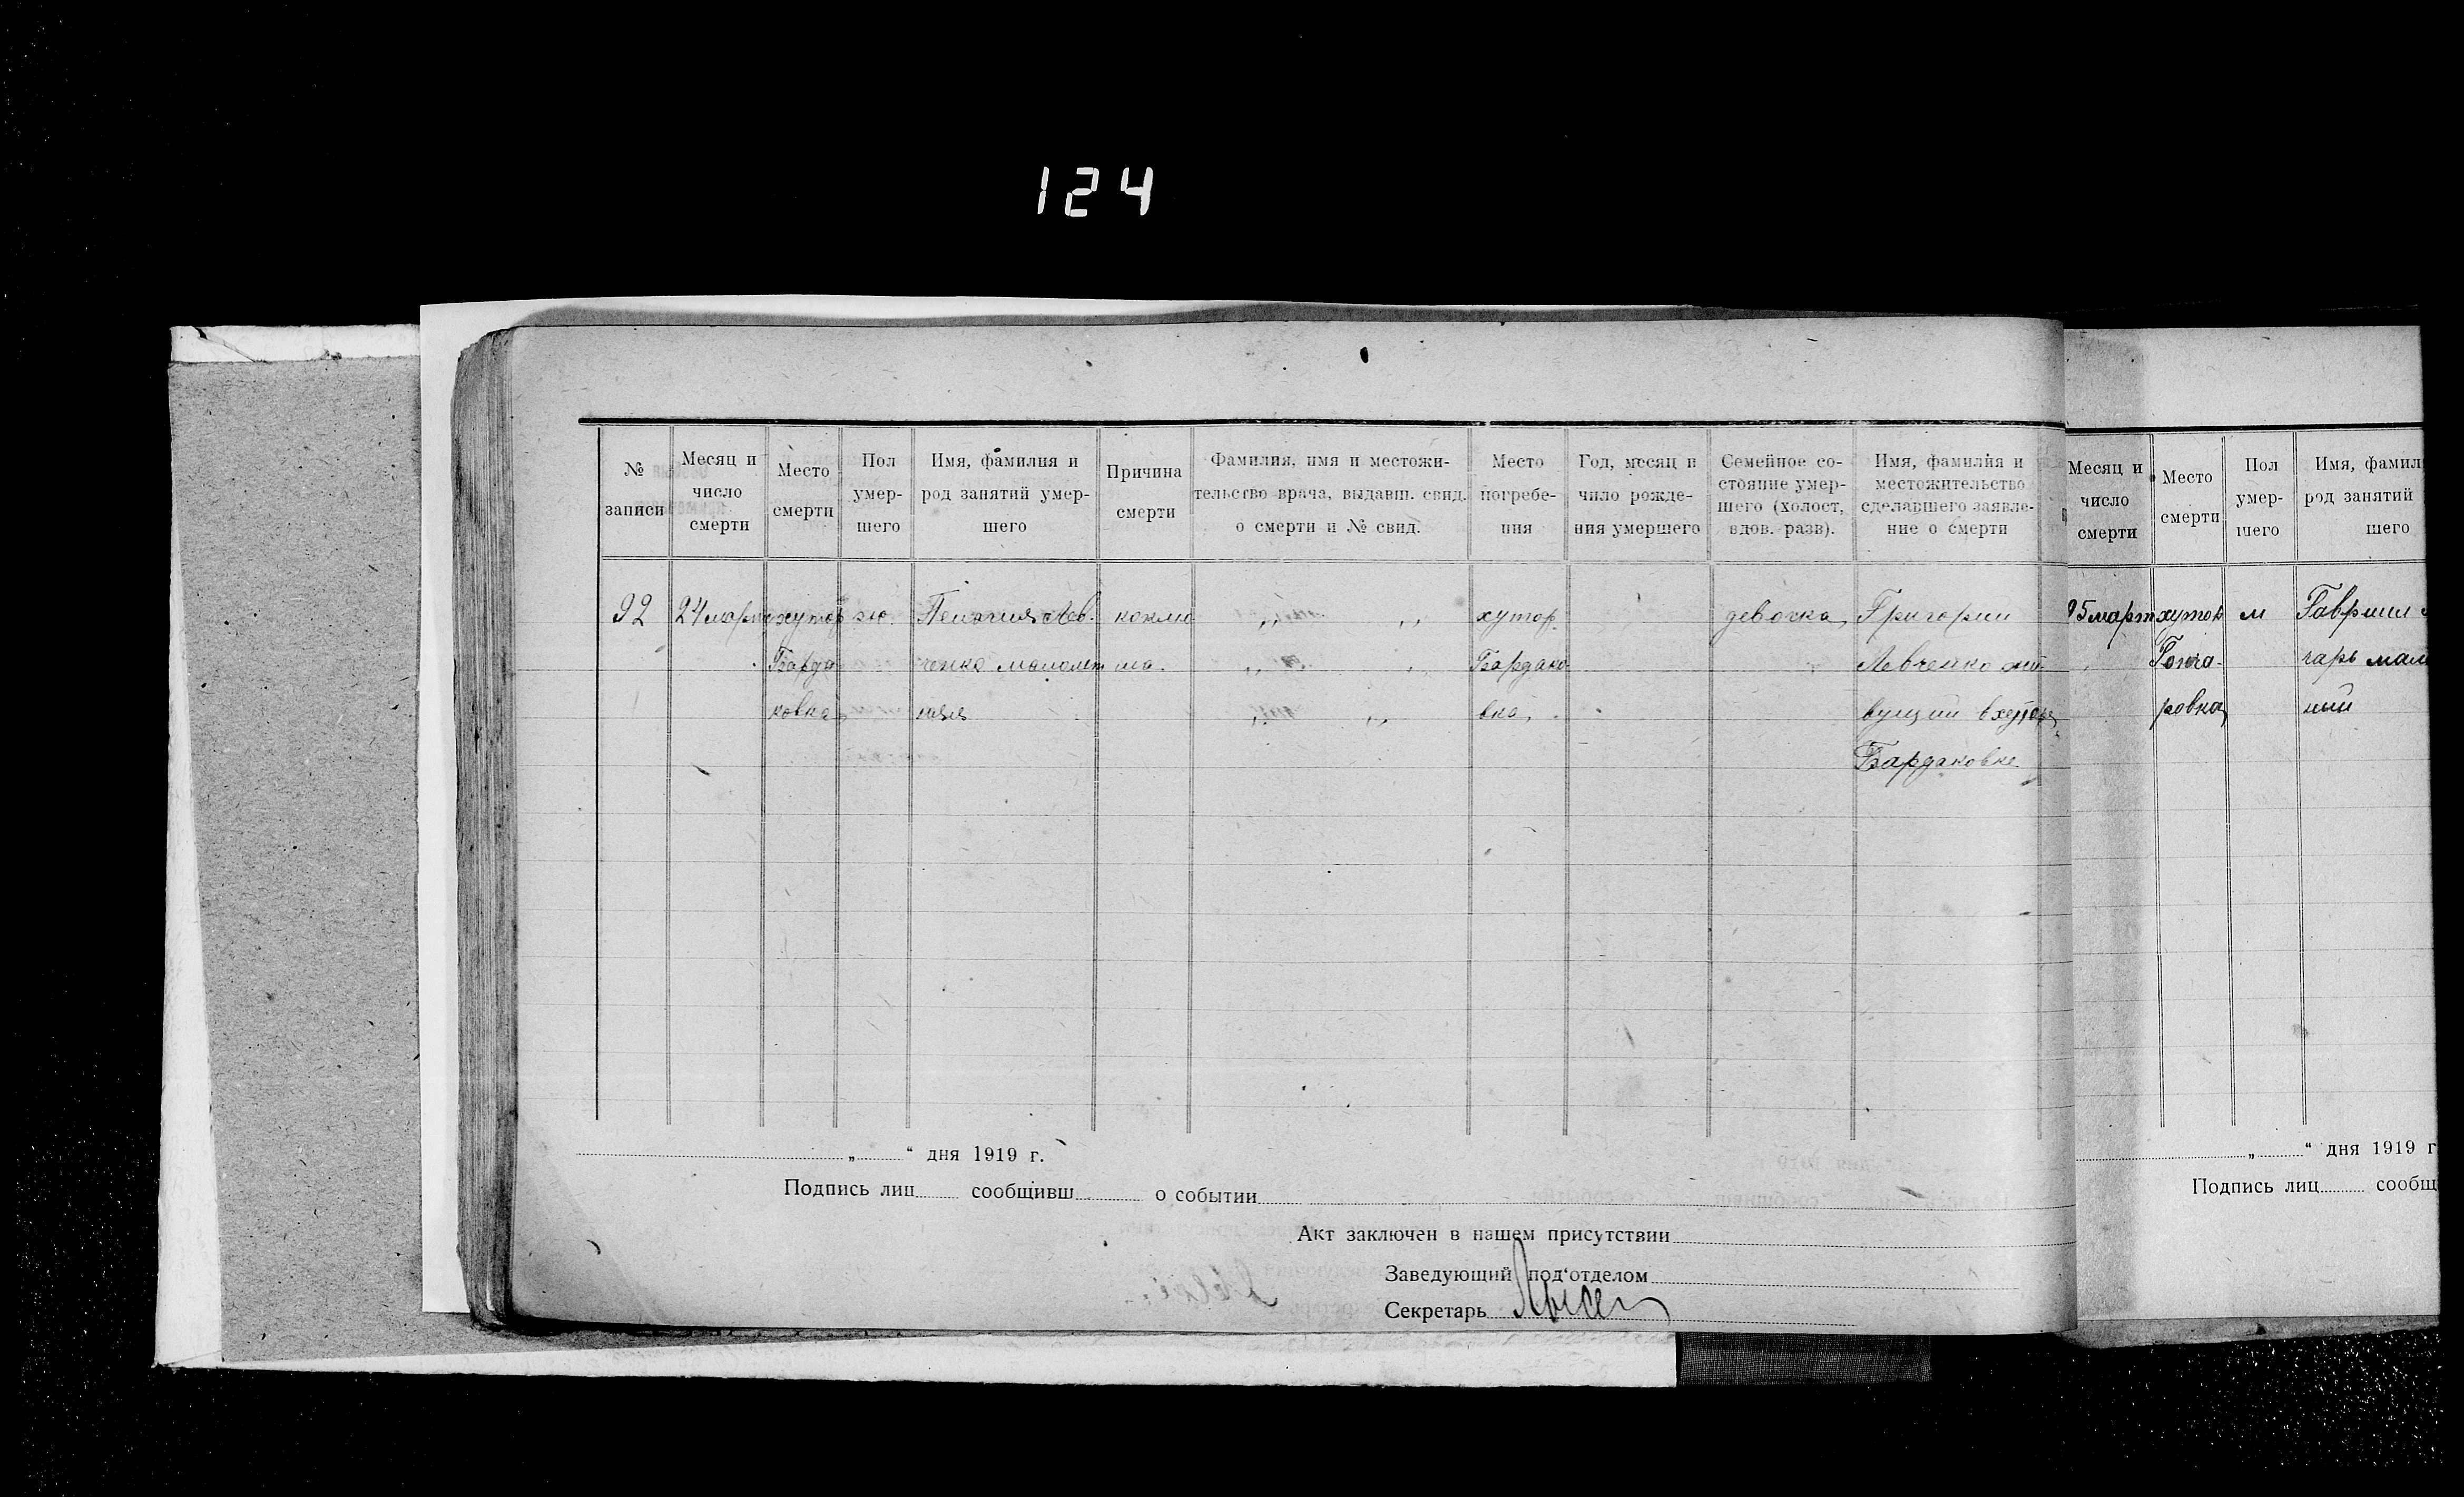 124
№ записи
Месяц и число смерти
Место смерти
Пол умершего
Имя, фамилия и род занятий умершего
Причина смерти
Фамилия, имя и местожительство врача, выдавш. свид. о смерти и № свид.
Место погребения
Год, месяц и число рождения умершего
Семейное состояние умершего (холост, вдов. разв).
Имя, фамилия и местожительство сделавшего заявление о смерти
92
24 март
хутор
Барда
ковка
ж.
Лев
ченко малолет
няя
„ „
„
„ „
хутор
Бардако
вка
девочка
Григорий
Левченко жи
вущий в хуторе
Бардаковке
„ “ дня 1919 г.
Подпись лиц сообщивш о событии
Акт заключен в нашем присутствии
Заведующий под‘отделом
Секретарь
Месяц и число смерти
Место смерти
Пол умершего
Имя, фамил
род занятий
шего
25 март
хутор
Гонча
ровка
м
Гавриил
чарь мал
ний
„ “ дня 1919 г
Подпись лиц сообщ